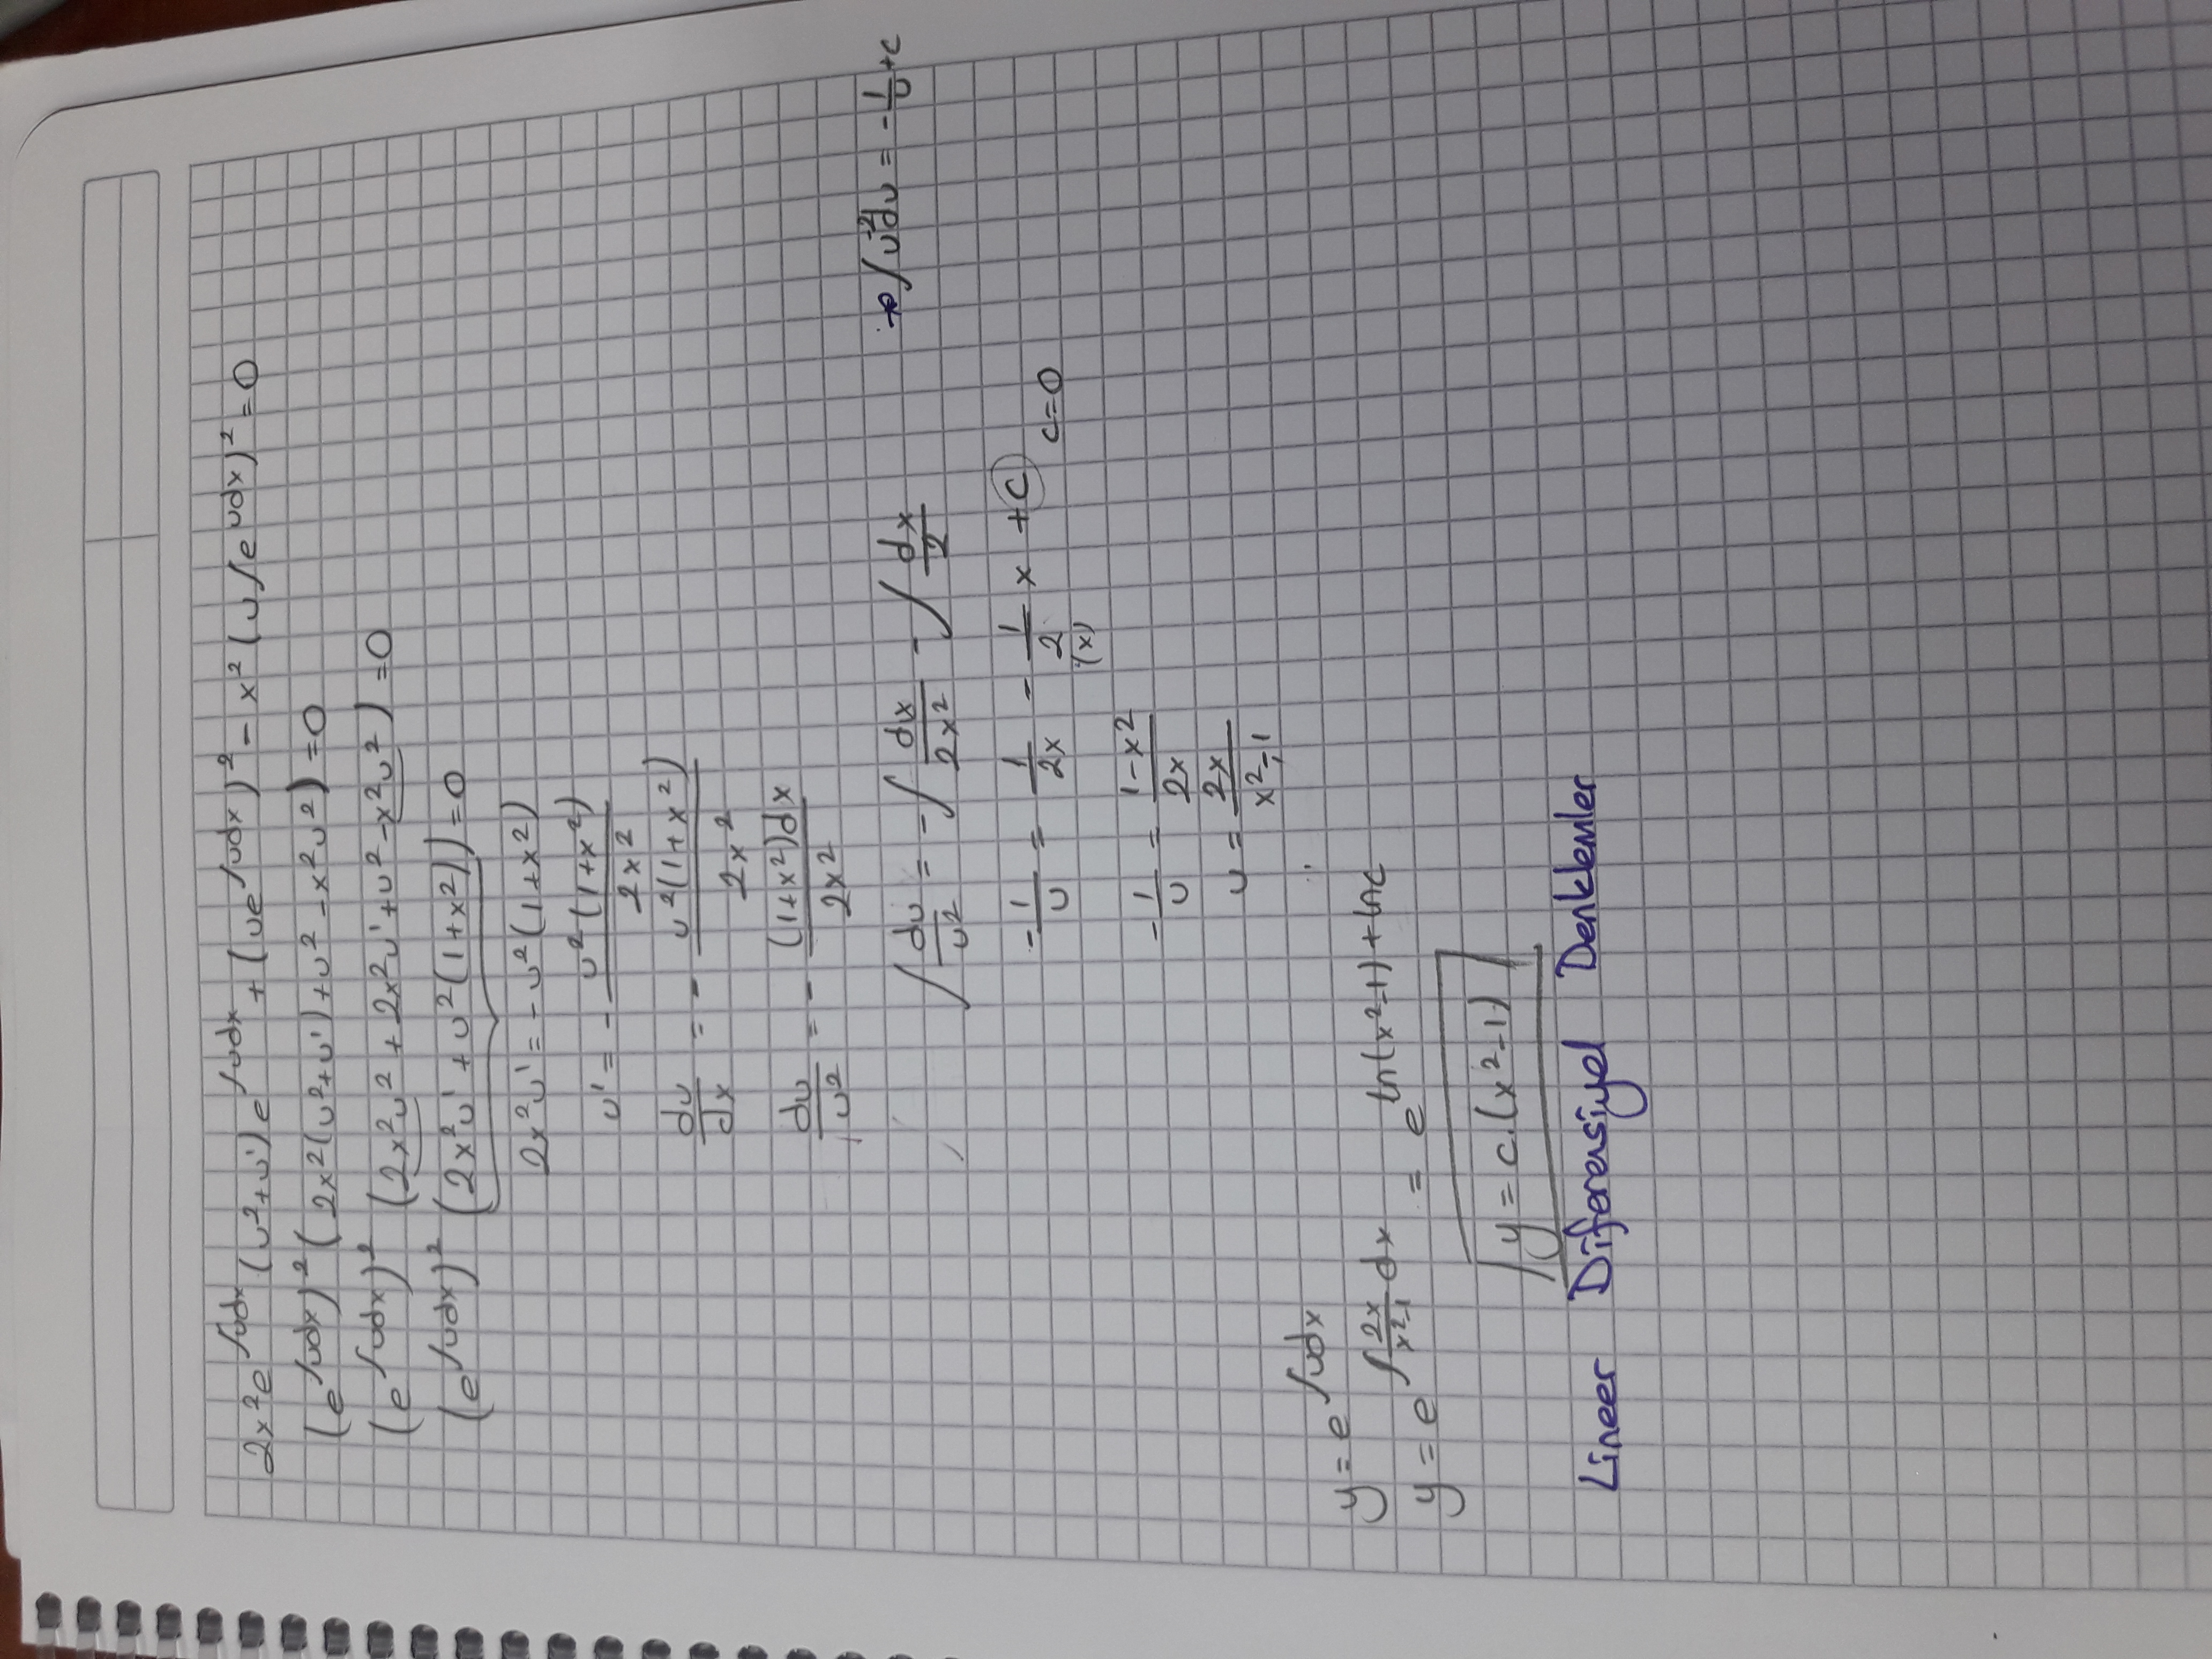 2x²e^∫udx (u²+u')e^∫udx + (ue^∫udx)² - x²(u∫e^udx)² = 0
(e^∫udx)² (2x²(u²+u')+u² -x²u²) = 0
(e^∫udx)² (2x²u² + 2x²u' + u² - x²u²) = 0
(e^∫udx)² (2x²u' + u²(1+x²)) = 0
2x²u' = -u²(1+x²)
u' = - u²(1+x²) / 2x²
du/dx = - u²(1+x²) / 2x²
du/u² = - (1+x²)dx / 2x²
∫ du/u² = -∫ dx/2x² - ∫ dx/2 → ∫u⁻²du = -1/u + c
-1/u = 1/2x - 1/2 x + c c=0
(x)
-1/u = 1-x² / 2x
u = 2x / x²-1
y = e^∫udx
y = e^∫ 2x/x²-1 dx = e^ln(x²-1)+lnc
y = c.(x²-1)
Lineer Diferensiyel Denklemler